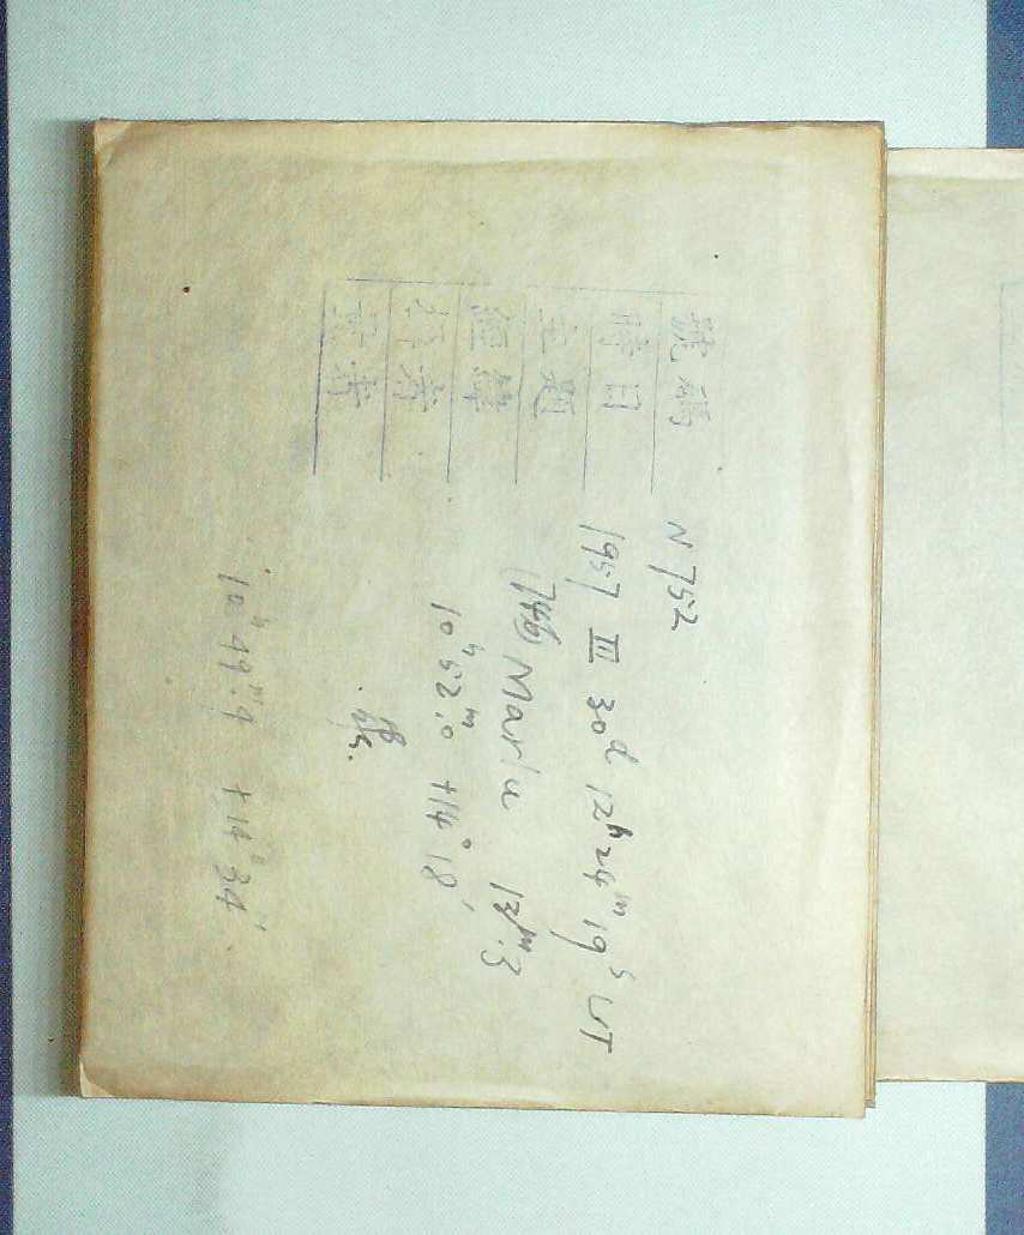 號碼 N 752
時日 1957 III 30d 12h 24m 19s UT
主題 (746) Marlu 13m.3
經緯 10h 52m.0 +14° 18'
10h 49m.9 +14° 34'